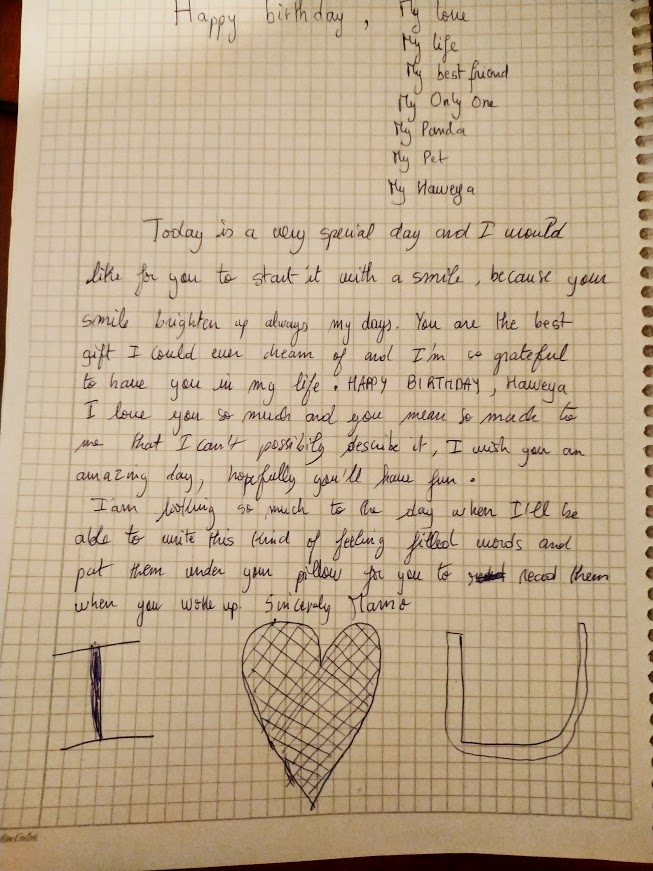 Happy birthday, My love
My life
My best friend
My Only One
My Panda
My Pet
My Haweya
Today is a very special day and I would
like for you to start it with a smile, because your
smile brighten up always my days. You are the best
gift I could ever dream of and I'm so grateful
to have you in my life. HAPPY BIRTHDAY, Haweya
I love you so much and you mean so much to
me that I can't possibily describe it, I wish you an
amazing day, hopefully you'll have fun.
I am looking so much to the day when I'll be
able to write this kind of feeling filled words and
put them under your pillow for you to read them
when you woke up. Sincerely Mamo
I U